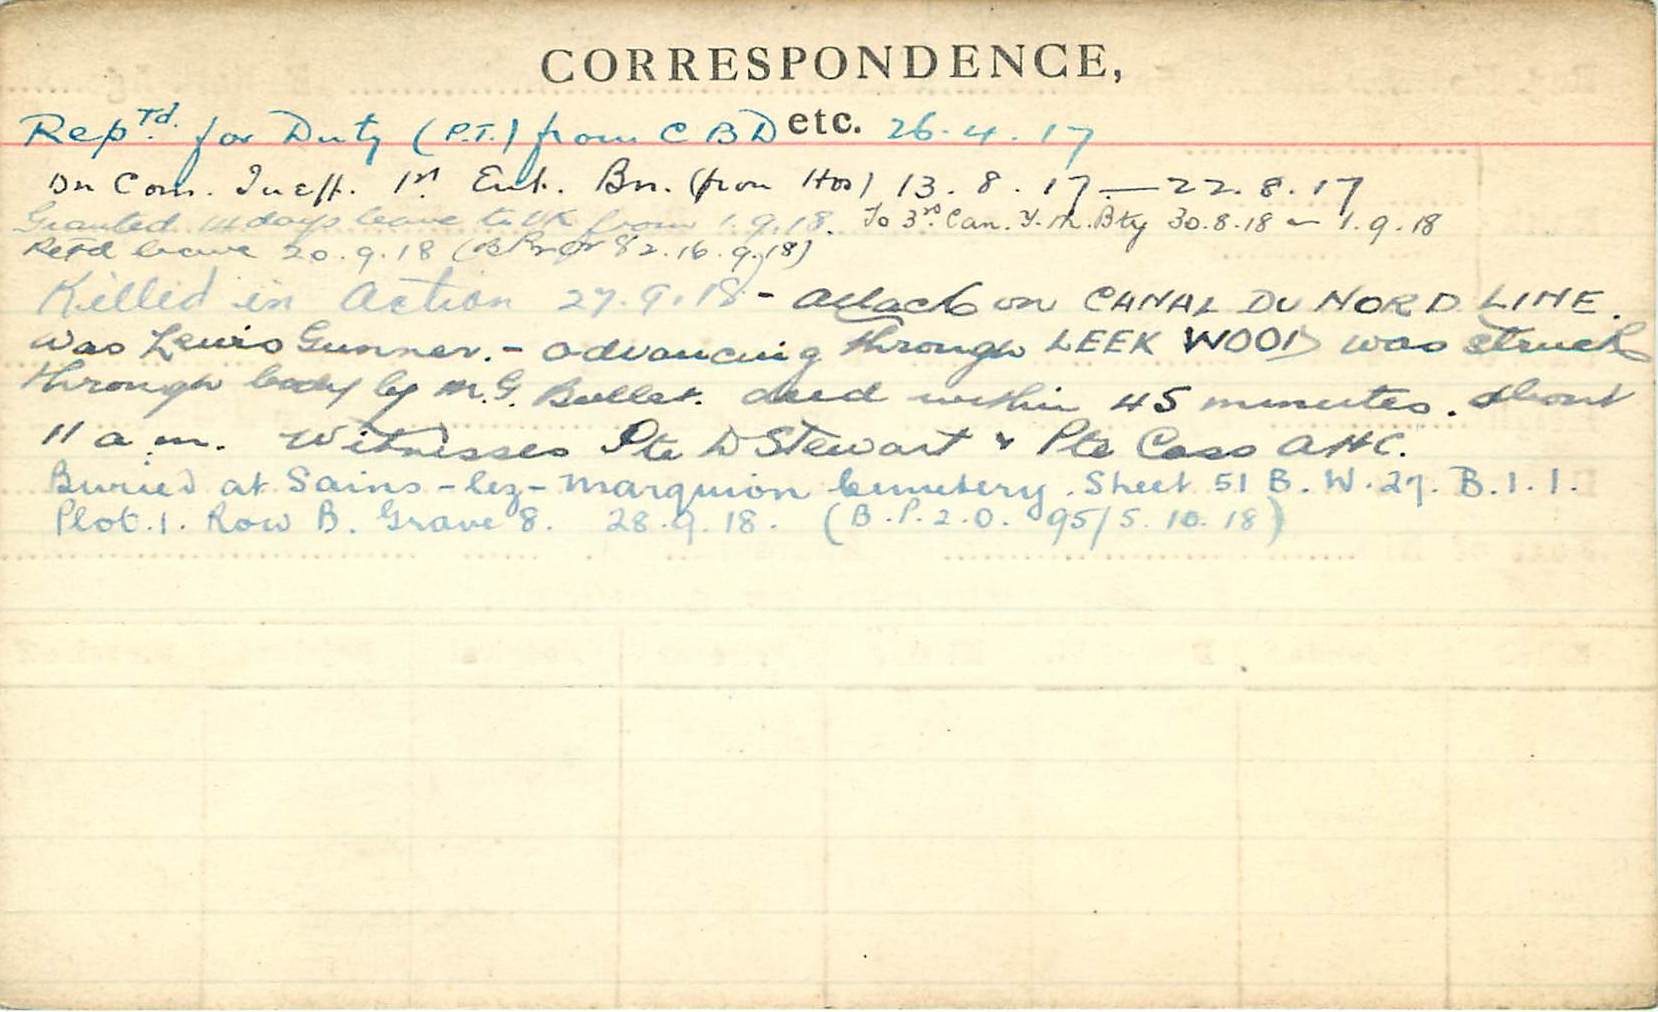 CORRESPONDENCE,
etc.
Rep.Td. for Duty (P.T.) from C B D 26.4.17
On Com. Ineff. 1st Ent. Bn. (from Hos) 13.8.17 — 22.8.17
Granted 14 days leave to UK from 1.9.18. To 3rd Can. T.M. Bty 30.8.18 — 1.9.18
Retd leave 20.9.18 82.16.9.18)
Killed in Action 27.9.18 - Attack on CANAL DU NORD LINE.
was Lewis Gunner. - advancing through LEEK WOOD was struck
through body by M.G. Bullet. died within 45 minutes. about
11 a.m. Witnesses Pte D Stewart & Pte Cass A H C.
Buried at Sains-lez-Marquion Cemetery. Sheet 51 B. W. 27. B. 1. 1.
Plot. 1. Row B. Grave 8. 28.9.18. (B.P.2.O. 95/5.10.18)